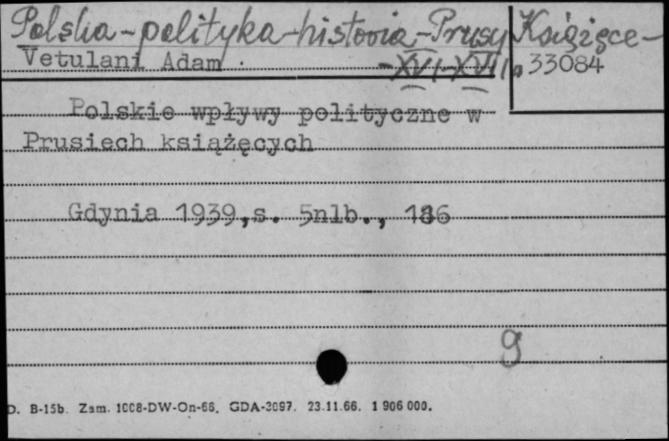 Polska-polityka-historia-Prusy Książęce-
Vetulani Adam -XVI-XVII w. 33084
Polskie wpływy polityczne w
Prusiech książęcych
Gdynia 1939, s. 5nlb., 186
9
D. B-15b. Zam. 1008-DW-On-66. GDA-3097. 23.11.66. 1 906 000.